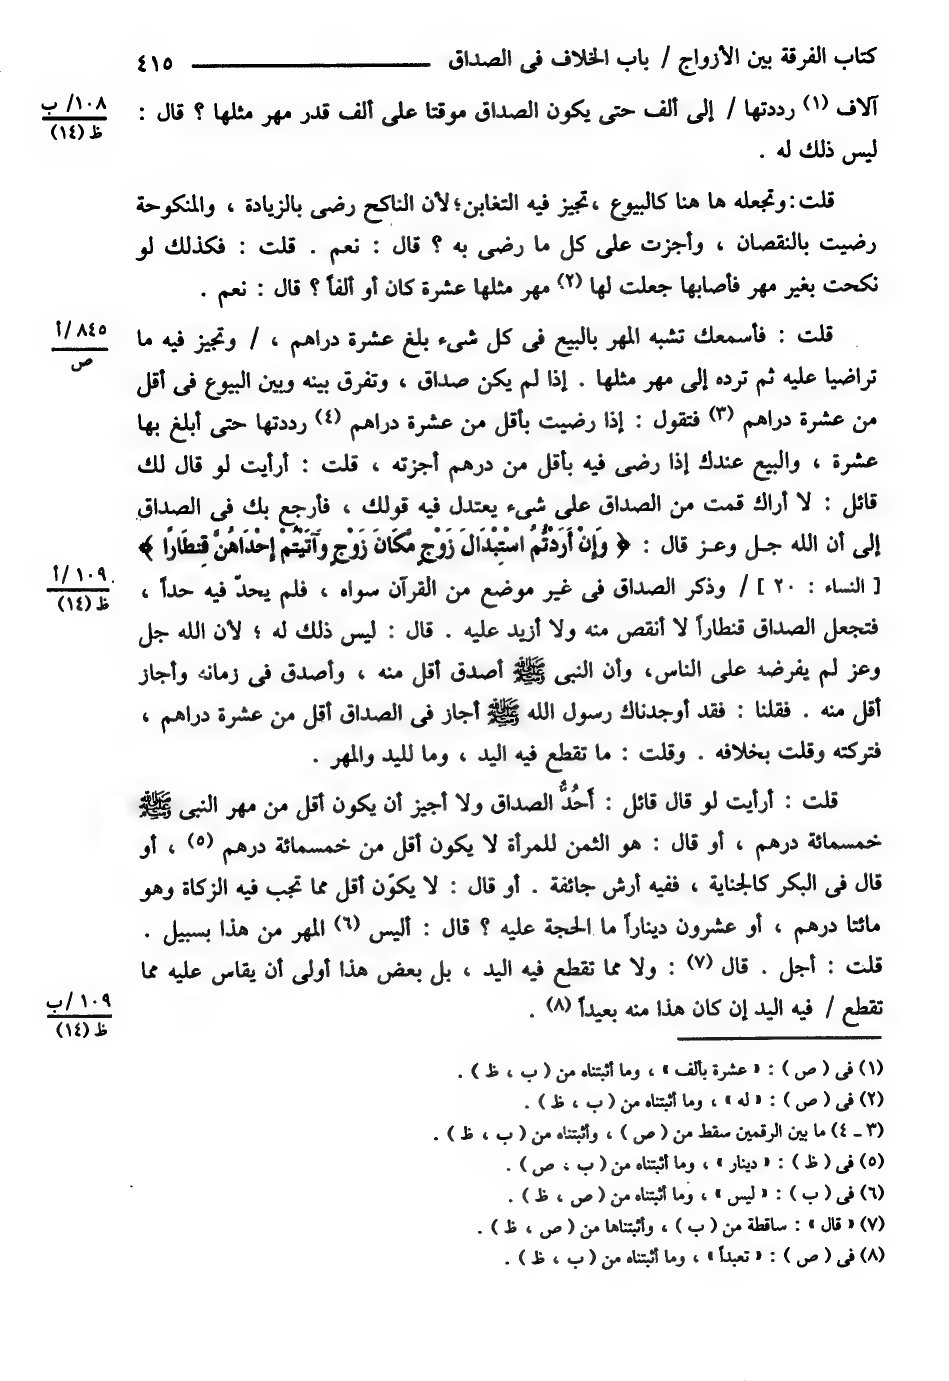 كتاب الفرقة بين الأزواج / باب الخلاف فى الصداق ـــــــــــــــ ٤١٥
آلاف (١) رددتها / إلى ألف حتى يكون الصداق موقتا على ألف قدر مهر مثلها ؟ قال :
١٠٨/ ب
ظ (١٤)
ليس ذلك له .
قلت : وتجعله ها هنا كالبيوع ، تجيز فيه التغابن ؛ لأن الناكح رضى بالزيادة ، والمنكوحة
رضيت بالنقصان ، وأجزت على كل ما رضى به ؟ قال : نعم . قلت : فكذلك لو
نكحت بغير مهر فأصابها جعلت لها (٢) مهر مثلها عشرة كان أو ألفاً ؟ قال : نعم .
قلت : فأسمعك تشبه المهر بالبيع فى كل شىء بلغ عشرة دراهم ، / وتجيز فيه ما
٨٤٥ /أ
ص
تراضيا عليه ثم ترده إلى مهر مثلها . إذا لم يكن صداق ، وتفرق بينه وبين البيوع فى أقل
من عشرة دراهم (٣) فتقول : إذا رضيت بأقل من عشرة دراهم (٤) رددتها حتى أبلغ بها
عشرة ، والبيع عندك إذا رضى فيه بأقل من درهم أجزته ، قلت : أرأيت لو قال لك
قائل : لا أراك قمت من الصداق على شىء يعتدل فيه قولك ، فأرجع بك فى الصداق
إلى أن الله جل وعز قال : ﴿ وَإِنْ أَرَدْتُمُ اسْتِبْدَالَ زَوْجٍ مَّكَانَ زَوْجٍ وَآتَيْتُمْ إِحْدَاهُنَّ قِنطَارًا ﴾
[ النساء : ٢٠ ] / وذكر الصداق فى غير موضع من القرآن سواه ، فلم يحدّ فيه حداً ،
١٠٩ /أ
ظ (١٤)
فتجعل الصداق قنطاراً لا أنقص منه ولا أزيد عليه . قال : ليس ذلك له ؛ لأن الله جل
وعز لم يفرضه على الناس، وأن النبى ﷺ أصدق أقل منه ، وأصدق فى زمانه وأجاز
أقل منه . فقلنا : فقد أوجدناك رسول الله ﷺ أجاز فى الصداق أقل من عشرة دراهم ،
فتركته وقلت بخلافه . وقلت : ما تقطع فيه اليد ، وما لليد والمهر .
قلت : أرأيت لو قال قائل : أَحُدُّ الصداق ولا أجيز أن يكون أقل من مهر النبى ﷺ
خمسمائة درهم ، أو قال : هو الثمن للمرأة لا يكون أقل من خمسمائة درهم (٥) ، أو
قال فى البكر كالجناية ، ففيه أرش جائفة . أو قال : لا يكون أقل مما تجب فيه الزكاة وهو
مائتا درهم ، أو عشرون ديناراً ما الحجة عليه ؟ قال : أليس (٦) المهر من هذا بسبيل .
قلت : أجل . قال (٧) : ولا مما تقطع فيه اليد ، بل بعض هذا أولى أن يقاس عليه مما
تقطع / فيه اليد إن كان هذا منه بعيداً (٨) .
١٠٩ /ب
ظ (١٤)
(١) فى ( ص ) : « عشرة بألف » ، وما أثبتناه من ( ب ، ظ ) .
(٢) فى ( ص ) : « له » ، وما أثبتناه من ( ب ، ظ ) .
(٣ ـ ٤) ما بين الرقمين سقط من ( ص ) ، وأثبتناه من ( ب ، ظ ) .
(٥) فى ( ظ ) : « دينار » ، وما أثبتناه من ( ب ، ص ) .
(٦) فى ( ب ) : « ليس » ، وما أثبتناه من ( ص ، ظ ) .
(٧) « قال » : ساقطة من ( ب ) ، وأثبتناها من ( ص ، ظ ) .
(٨) فى ( ص ) : « تعبداً » ، وما أثبتناه من ( ب ، ظ ) .